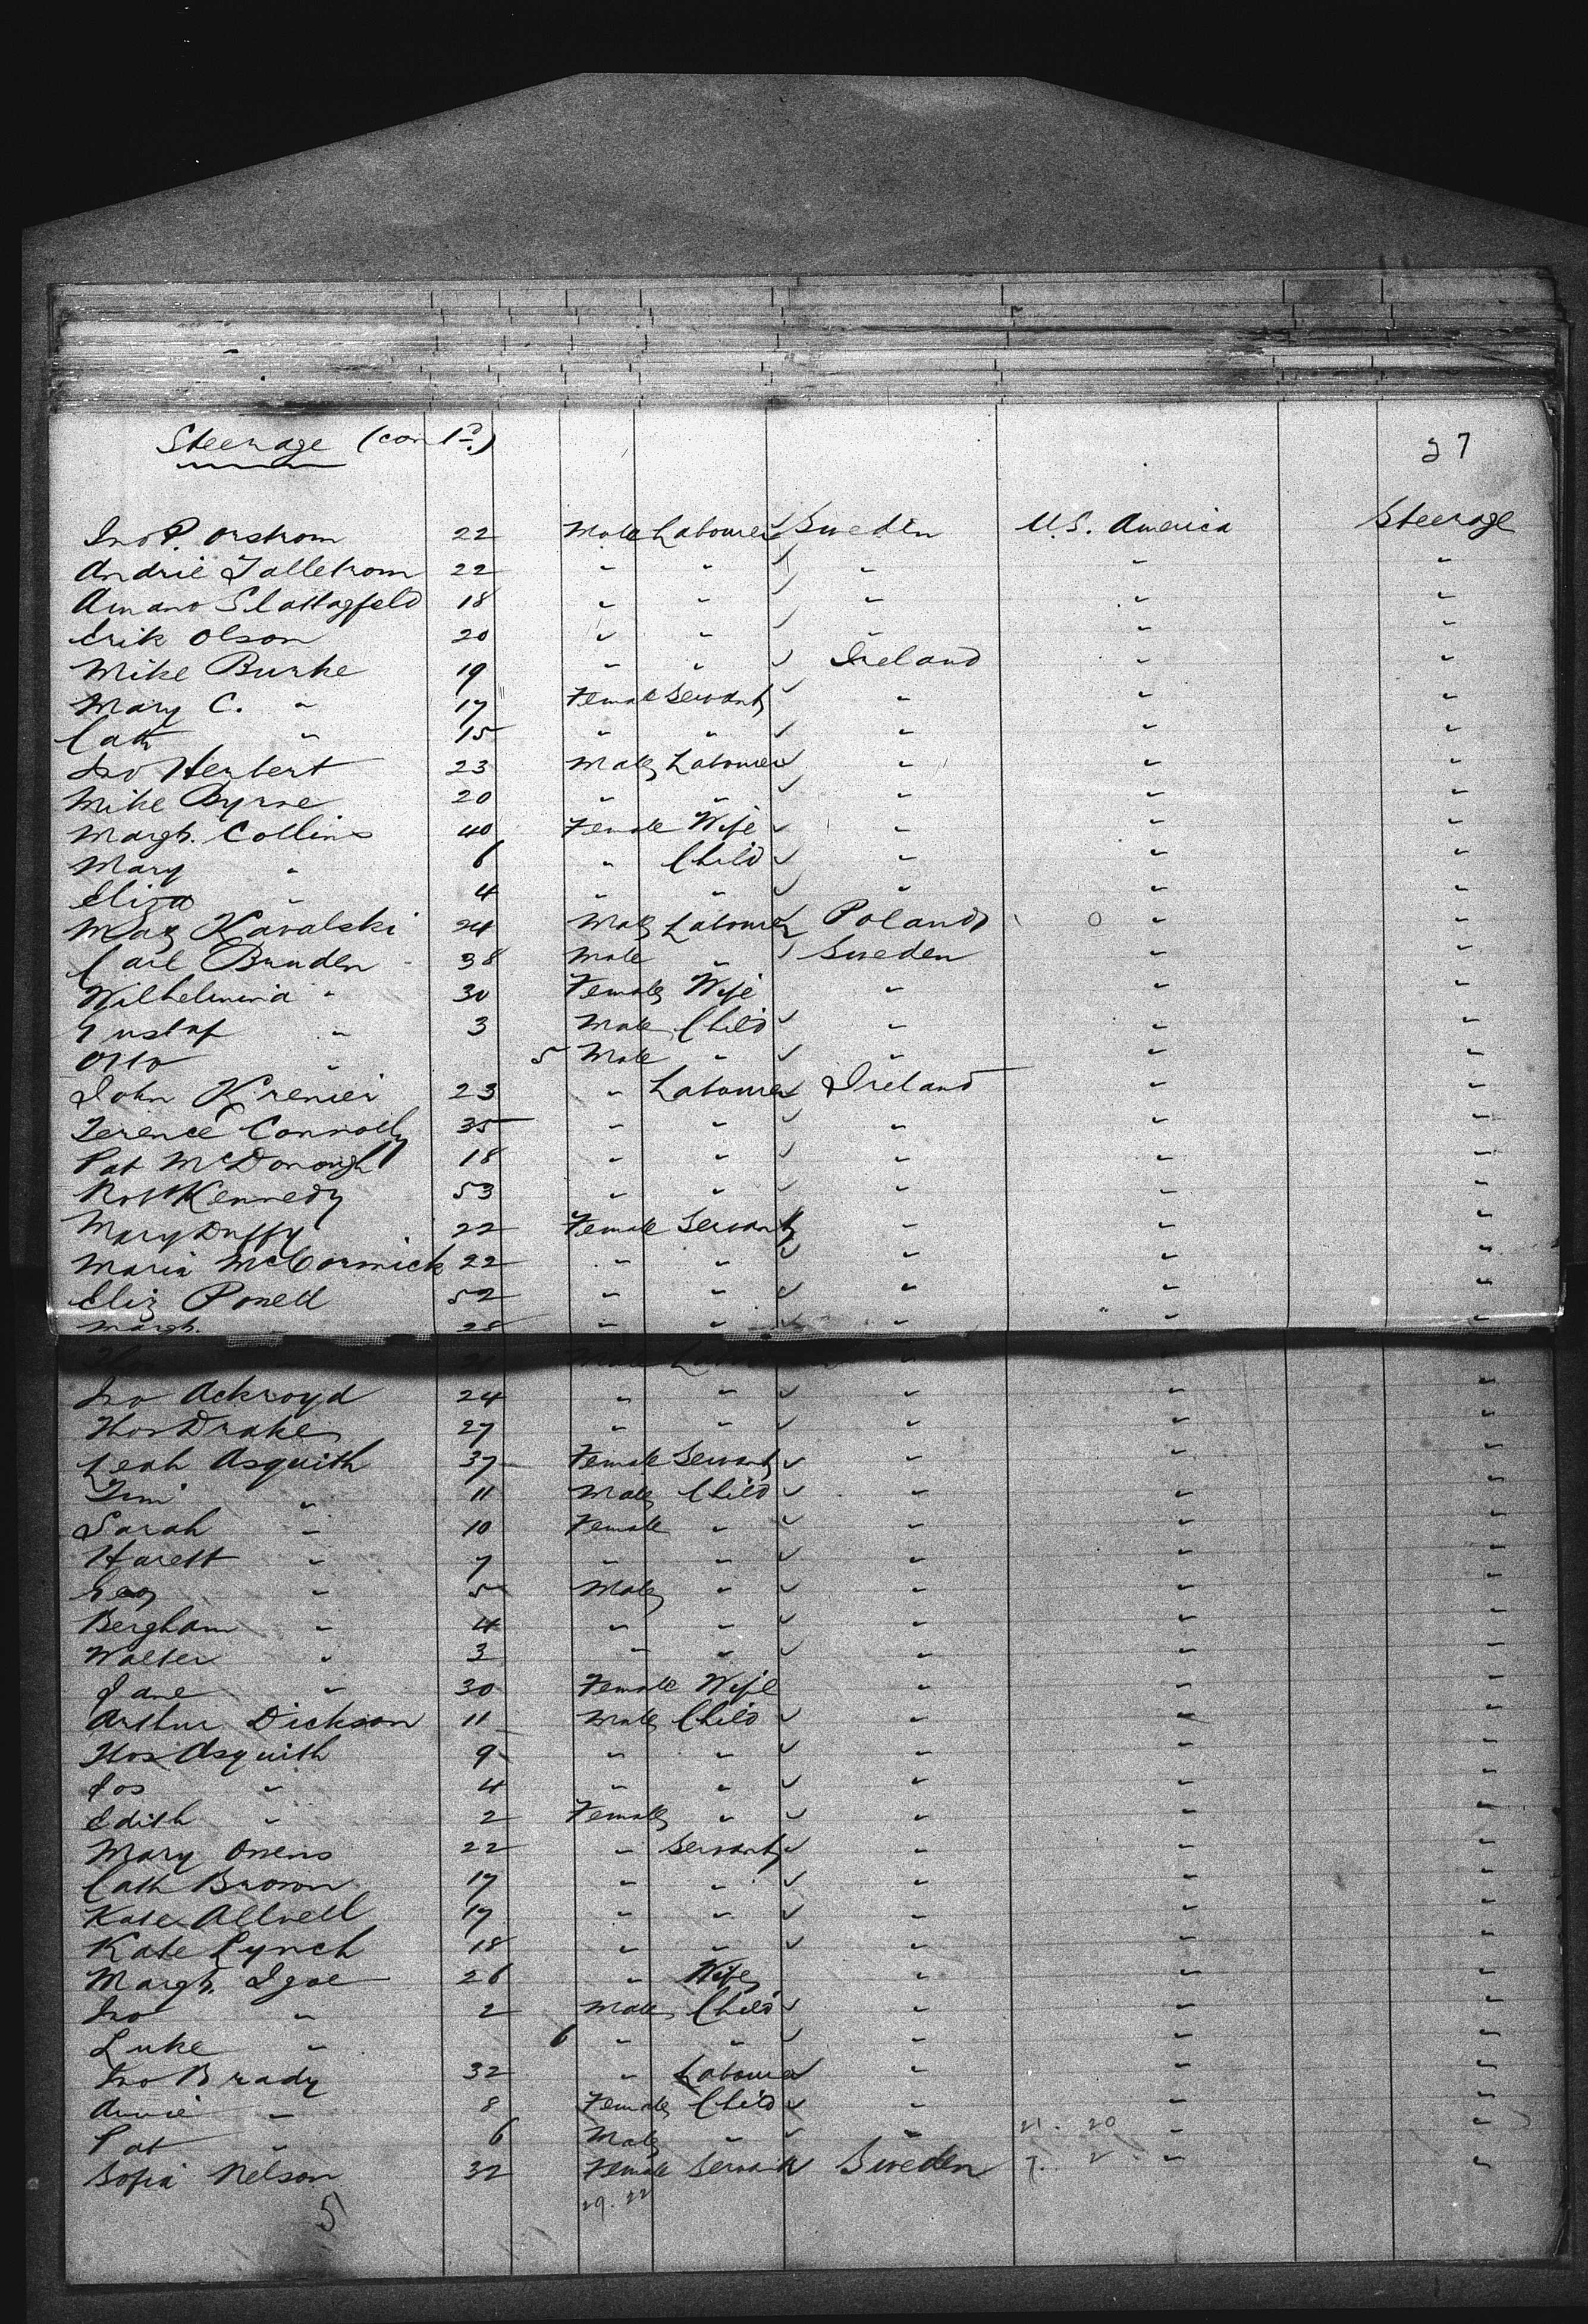 Steerage (contd.)
27
Jno P. Orstrom 22 Male Labourer Sweden U.S. America Steerage
Andrie Tallstrom 22 " " " " "
18 " " " " "
Erik Olson 20 " " " " "
Mike Burke 19 " " Ireland " "
Mary C. " 17 Female Servant " " "
Cath " 15 " " " " "
Jno Herbert 23 Male Labourer " " "
Mike Byrne 20 " " " " "
Margt. Collins 40 Female Wife " " "
Mary " 6 " Child " " "
Eliza " 4 " " " " "
Kavalski 24 Male Labourer Poland " "
Carl Brunden 38 Male " Sweden " "
Wilhelmina " 30 Female Wife " " "
Gustaf " 3 Male Child " " "
Otto " 5 Male " " " "
John 23 " Labourer Ireland " "
Terence Connolly 35 " " " " "
Pat McDonough 18 " " " " "
Robt Kennedy 53 " " " " "
Mary Duffy 22 Female Servant " " "
Maria McCormick 22 " " " " "
Eliz Powell 52 " " " " "
Margt. " 28 " " " " "
Male " "
Jno Ackroyd 24 " " " " "
Thos Drake 27 " " " " "
Leah Asquith 37 Female Servant " " "
Tim " 11 Male Child " " "
Sarah " 10 Female " " " "
Harett " 7 " " " " "
Geo " 5 Male " " " "
Bergham " 4 " " " " "
Walter " 3 " " " " "
Jane " 30 Female Wife " " "
Arthur Dickson 11 Male Child " " "
Thos Asquith 9 " " " " "
Jos " 4 " " " " "
Edith " 2 Female " " " "
Mary Owens 22 " Servant " " "
Cath Brown 17 " " " " "
Kate Allwell 17 " " " " "
Kate Lynch 18 " " " " "
Margt. Igoe 26 " Wife " " "
Jno " 2 Male Child " " "
Luke " 6 " " " " "
Jno Brady 32 " Labourer " " "
Annie " 8 Female Child " " "
Pat " 6 Male " " 21. 20 " "
Sofia Nelson 32 Female Servant Sweden 7. 2 " "
29. 22
51